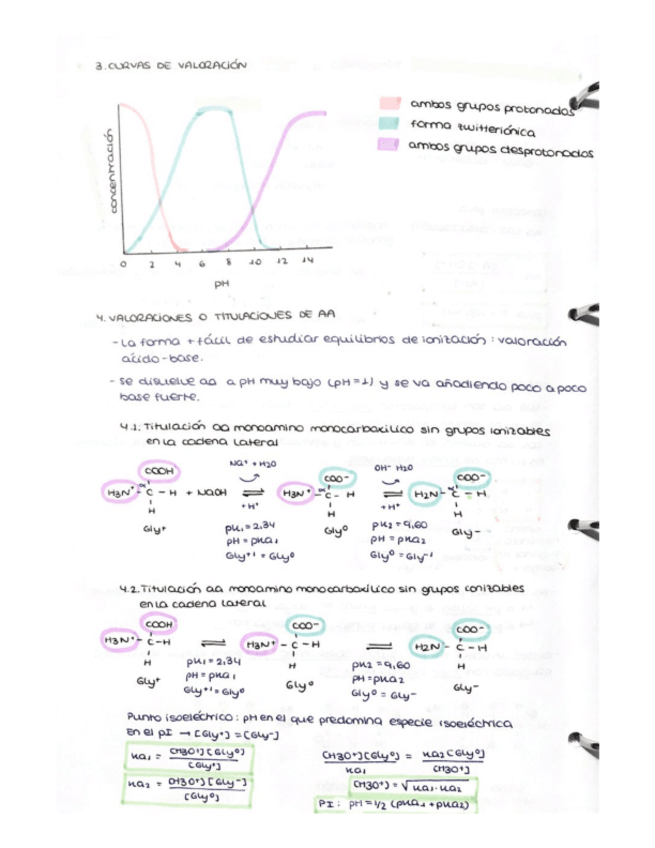 3. CURVAS DE VALORACIÓN
concentración
0 2 4 6 8 10 12 14
pH
ambos grupos protonados
forma twitteriónica
ambos grupos desprotonados
4. VALORACIONES O TITULACIONES DE AA
- La forma + fácil de estudiar equilibrios de ionización: valoración
ácido-base.
- se disuelve aa a pH muy bajo (pH=1) y se va añadiendo poco a poco
base fuerte.
4.1. Titulación aa monoamino monocarboxílico sin grupos ionizables
en la cadena lateral
Na+ + H2O OH- H2O
COOH COO- COO-
H3N+ - C - H + NaOH ⇌ H3N+ - C - H ⇌ H2N - C - H
+ H+ + H+
H H H
Gly+ Gly0 Gly-
pK1 = 2,34 pK2 = 9,60
pH = pKa1 pH = pKa2
Gly+1 = Gly0 Gly0 = Gly-1
4.2. Titulación aa monoamino monocarboxílico sin grupos ionizables
en la cadena lateral
COOH COO- COO-
H3N+ - C - H ⇌ H3N+ - C - H ⇌ H2N - C - H
H H H
Gly+ Gly0 Gly-
pK1 = 2,34 pK2 = 9,60
pH = pKa1 pH = pKa2
Gly+1 = Gly0 Gly0 = Gly-
Punto isoeléctrico: pH en el que predomina especie isoeléctrica
En el pI → [Gly+] = [Gly-]
Ka1 = [H3O+][Gly0] / [Gly+]
Ka2 = [H3O+][Gly-] / [Gly0]
[H3O+][Gly0] / Ka1 = Ka2[Gly0] / [H3O+]
[H3O+] = √Ka1·Ka2
PI: pH = 1/2 (pKa1 + pKa2)